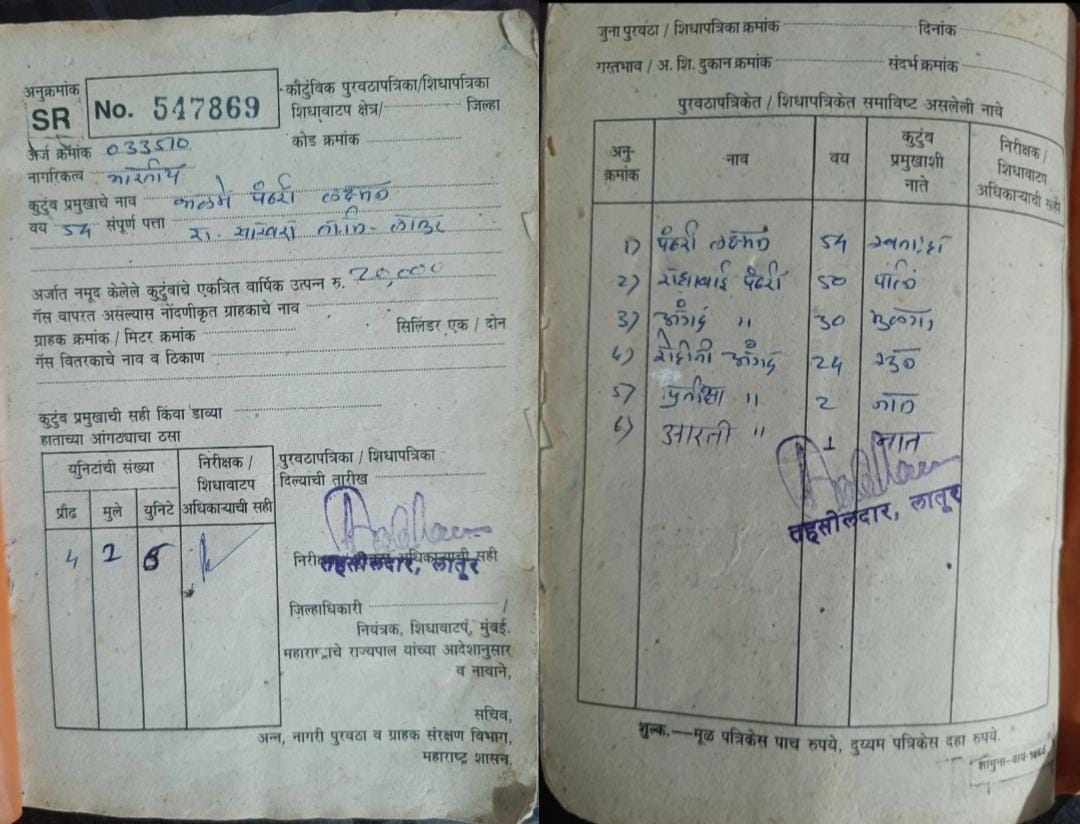 अनुक्रमांक
SR No. 547869
कौटुंबिक पुरवठापत्रिका/शिधापत्रिका
शिधावाटप क्षेत्र/ जिल्हा
कोड क्रमांक
अर्ज क्रमांक 033510
नागरिकत्व भारतीय
कुटुंब प्रमुखाचे नाव पंढरी लक्ष्मण
वय 54 संपूर्ण पत्ता रा. साखरा ता.जि- लातूर
अर्जात नमूद केलेले कुटुंबाचे एकत्रित वार्षिक उत्पन्न रु. 20,000
गॅस वापरत असल्यास नोंदणीकृत ग्राहकाचे नाव
ग्राहक क्रमांक / मिटर क्रमांक सिलिंडर एक / दोन
गॅस वितरकाचे नाव व ठिकाण
कुटुंब प्रमुखाची सही किंवा डाव्या
हाताच्या आंगठ्याचा ठसा
युनिटांची संख्या
निरीक्षक /
शिधावाटप
अधिकाऱ्याची सही
प्रौढ मुले युनिटे
4 2 6
पुरवठापत्रिका / शिधापत्रिका
दिल्याची तारीख
निरीक्षक अधिकाऱ्याची सही
तहसीलदार, लातूर
जिल्हाधिकारी /
नियंत्रक, शिधावाटप, मुंबई.
महाराष्ट्राचे राज्यपाल यांच्या आदेशानुसार
व नावाने,
सचिव,
अन्न, नागरी पुरवठा व ग्राहक संरक्षण विभाग,
महाराष्ट्र शासन.
जुना पुरवठा / शिधापत्रिका क्रमांक दिनांक
गस्तभाव / अ. शि. दुकान क्रमांक संदर्भ क्रमांक
पुरवठापत्रिकेत / शिधापत्रिकेत समाविष्ट असलेली नावे
अनु-
क्रमांक
नाव
वय
कुटुंब
प्रमुखाशी
नाते
निरीक्षक /
शिधावाटप
अधिकाऱ्याची सही
1) पंढरी लक्ष्मण 54 स्वतः
2) राधाबाई पंढरी 50 पत्नि
3) अंगद " 30 मुलगा
4) रोहीनी अंगद 24 सून
5) प्रतीक्षा " 2 नात
6) आरती " 1 नात
तहसीलदार, लातूर
शुल्क.—मूळ पत्रिकेस पाच रुपये, दुय्यम पत्रिकेस दहा रुपये.